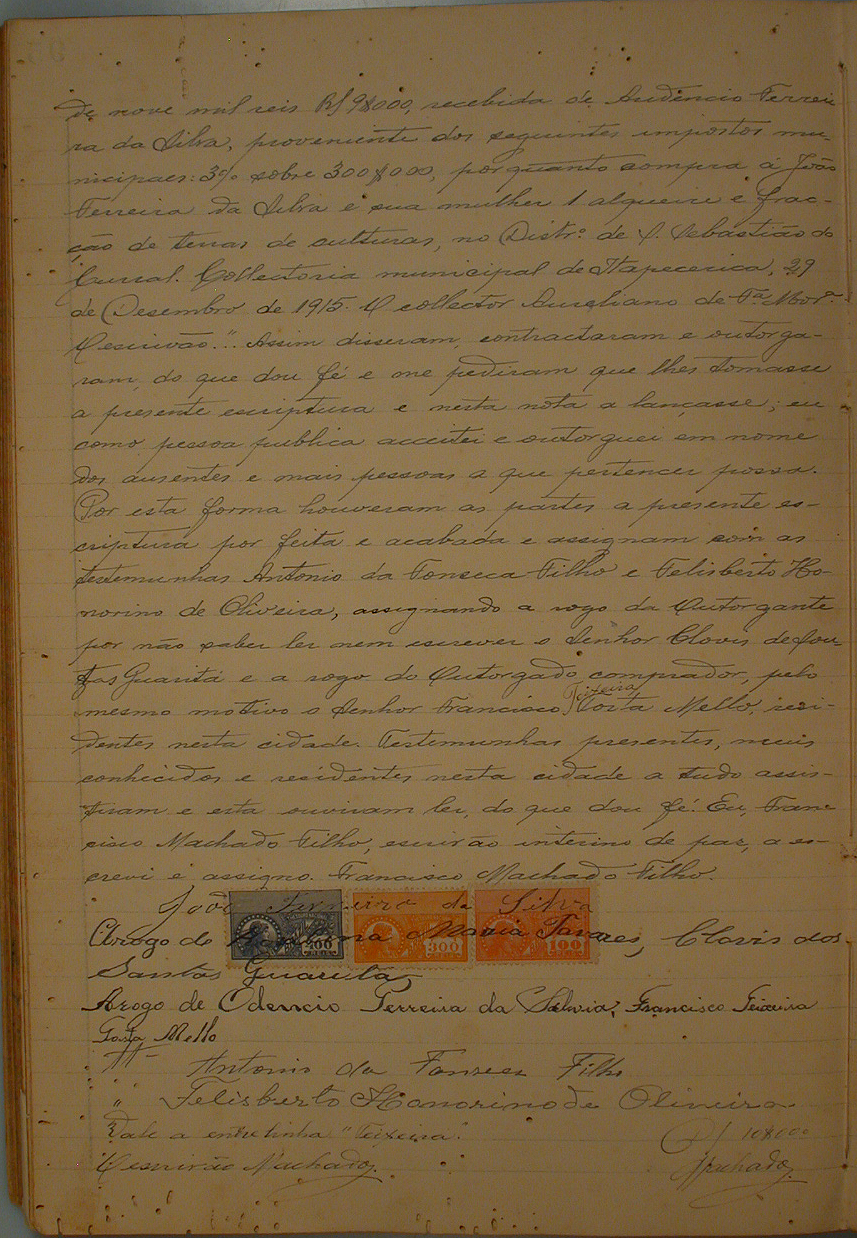 de nove mil reis R$ 9$000, recebida de Audencio Ferrei
ra da Silva, proveniente dos seguintes impostos mu-
nicipaes: 3% sobre 300$000, porquanto compra á João
Ferreira da Silva e sua mulher 1 alqueire e frac-
ção de terras de culturas, no Distrº. de S. Sebastião do
Curral. Collectoria municipal de Itapecerica, 29
de Desembro de 1915. O collector Aureliano de Fª. Morª.
O escrivão.." Assim disseram, contractaram e outorga-
ram, do que dou fé e me pediram que lhes tomasse
a presente escriptura e nesta nota a lançasse; eu
como pessoa publica acceitei e outorguei em nome
dos ausentes e mais pessoas a que pertencer possa.
Por esta forma houveram as partes a presente es-
criptura por feita e acabada e assignam com as
testemunhas Antonio da Fonseca Filho e Felisberto Ho-
norino de Oliveira, assignando a rogo da Outorgante
por não saber ler nem escrever o Senhor Clovis de
Guaritá e a rogo do Outorgado comprador, pelo
mesmo motivo o Senhor Francisco Teixeira Costa Mello, resi-
dentes nesta cidade. Testemunhas presentes, meus
conhecidos e residentes nesta cidade a tudo assis-
tiram e esta ouviram ler, do que dou fé. Eu, Fran-
cisco Machado Filho, escrivão interino de paz, a es-
crevi e assigno. Francisco Machado Filho.
João Ferreira da Silva
300 100
Arogo de Maria Tavares, Clovis dos
Santos Guaritá,
Arogo de Odencio Ferreira da Silvia, Francisco Teixeira
Costa Mello
Antonio da Fonseca Filho
" Felisberto Honorino de Oliveira
Vale a entrelinha "Teixeira". R$ 10$000
O escrivão Machado. Machado